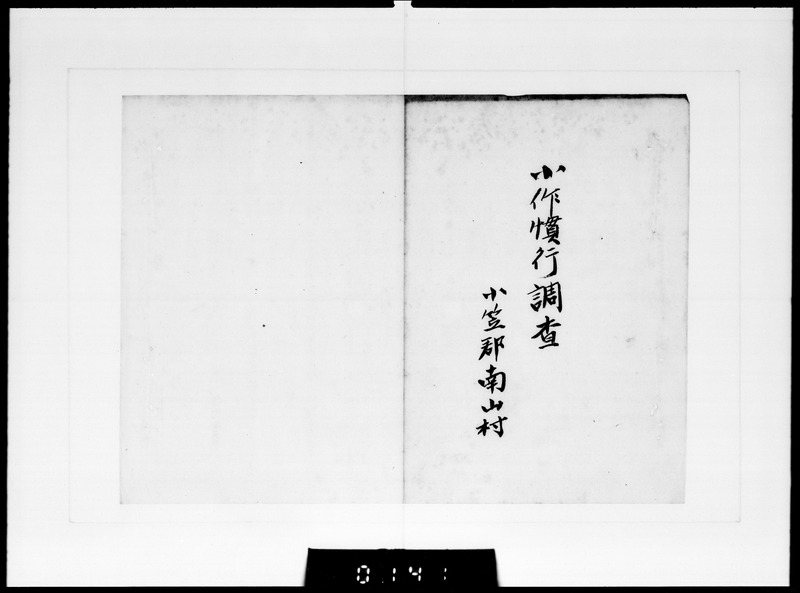 小作慣行調査
小笠郡南山村
0141